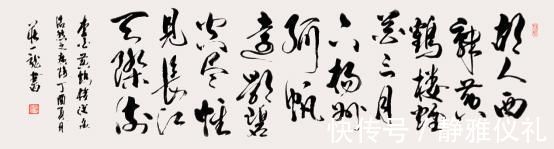 故人西
辞黄
鹤楼烟
花三月
下扬州
孤帆
远影碧
空尽惟
见长江
天际流
李白黄鹤楼送孟
浩然之广陵丁酉夏月
庄一龙书
快传号/静雅仪礼